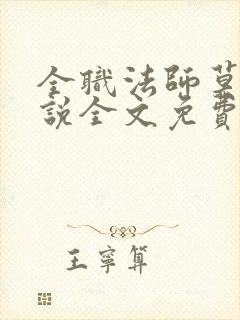 全職法師莫
說全文免費
王寧算